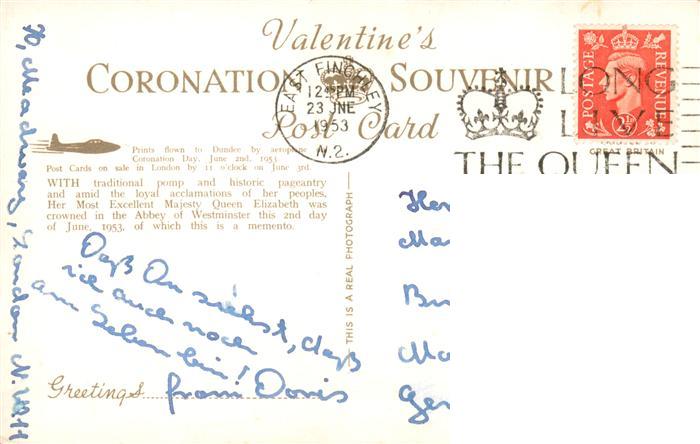 Valentine's
CORONATION SOUVENIR
Post Card
EAST FINCHLEY
12 45 PM
23 JNE
1953
N.2.
LONG
LIVE
THE QUEEN
POSTAGE
REVENUE
2½D
GREAT BRITAIN
Prints flown to Dundee by aeroplane
Coronation Day, June 2nd, 1953
Post Cards on sale in London by 11 o'clock on June 3rd.
WITH traditional pomp and historic pageantry
and amid the loyal acclamations of her peoples,
Her Most Excellent Majesty Queen Elizabeth was
crowned in the Abbey of Westminster this 2nd day
of June, 1953, of which this is a memento.
THIS IS A REAL PHOTOGRAPH
Daß Du siehst, daß
ich auch noch
am Leben bin!
Greetings from Doris
London N.W.11
Her
Ma
Bu
Mo
Ger